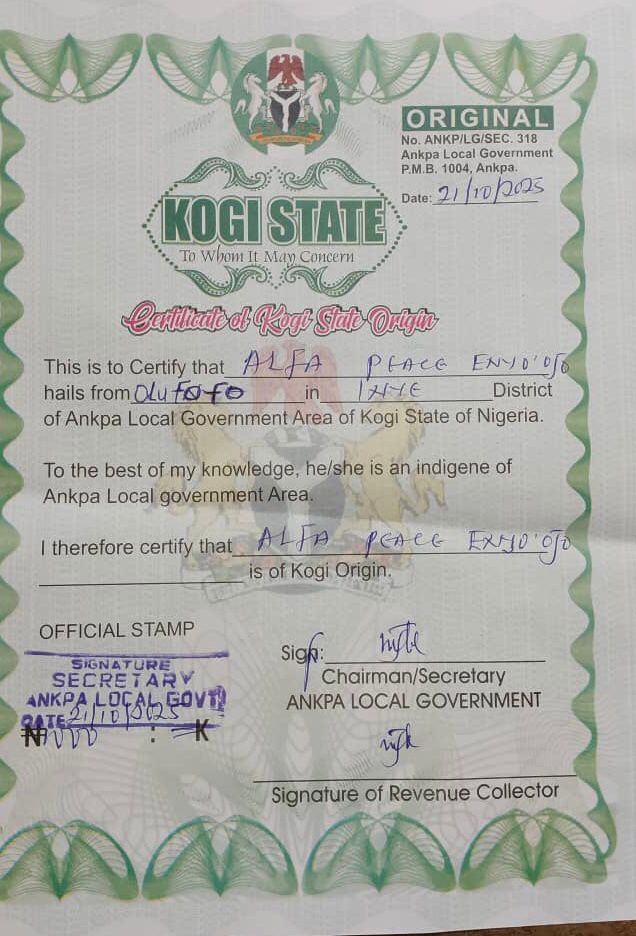 ORIGINAL
No. ANKP/LG/SEC. 318
Ankpa Local Government
P.M.B. 1004, Ankpa.
Date: 21/10/2025
KOGI STATE
To Whom It May Concern
Certificate of Kogi State Origin
This is to Certify that ALFA PEACE ENYO'OJO
hails from OLUFOFO in INYE District
of Ankpa Local Government Area of Kogi State of Nigeria.
To the best of my knowledge, he/she is an indigene of
Ankpa Local government Area.
I therefore certify that ALFA PEACE ENYO'OJO
is of Kogi Origin.
OFFICIAL STAMP
SIGNATURE
SECRETARY
ANKPA LOCAL GOVT
DATE 21/10/2025
₦ : K
Sign:
Chairman/Secretary
ANKPA LOCAL GOVERNMENT
Signature of Revenue Collector